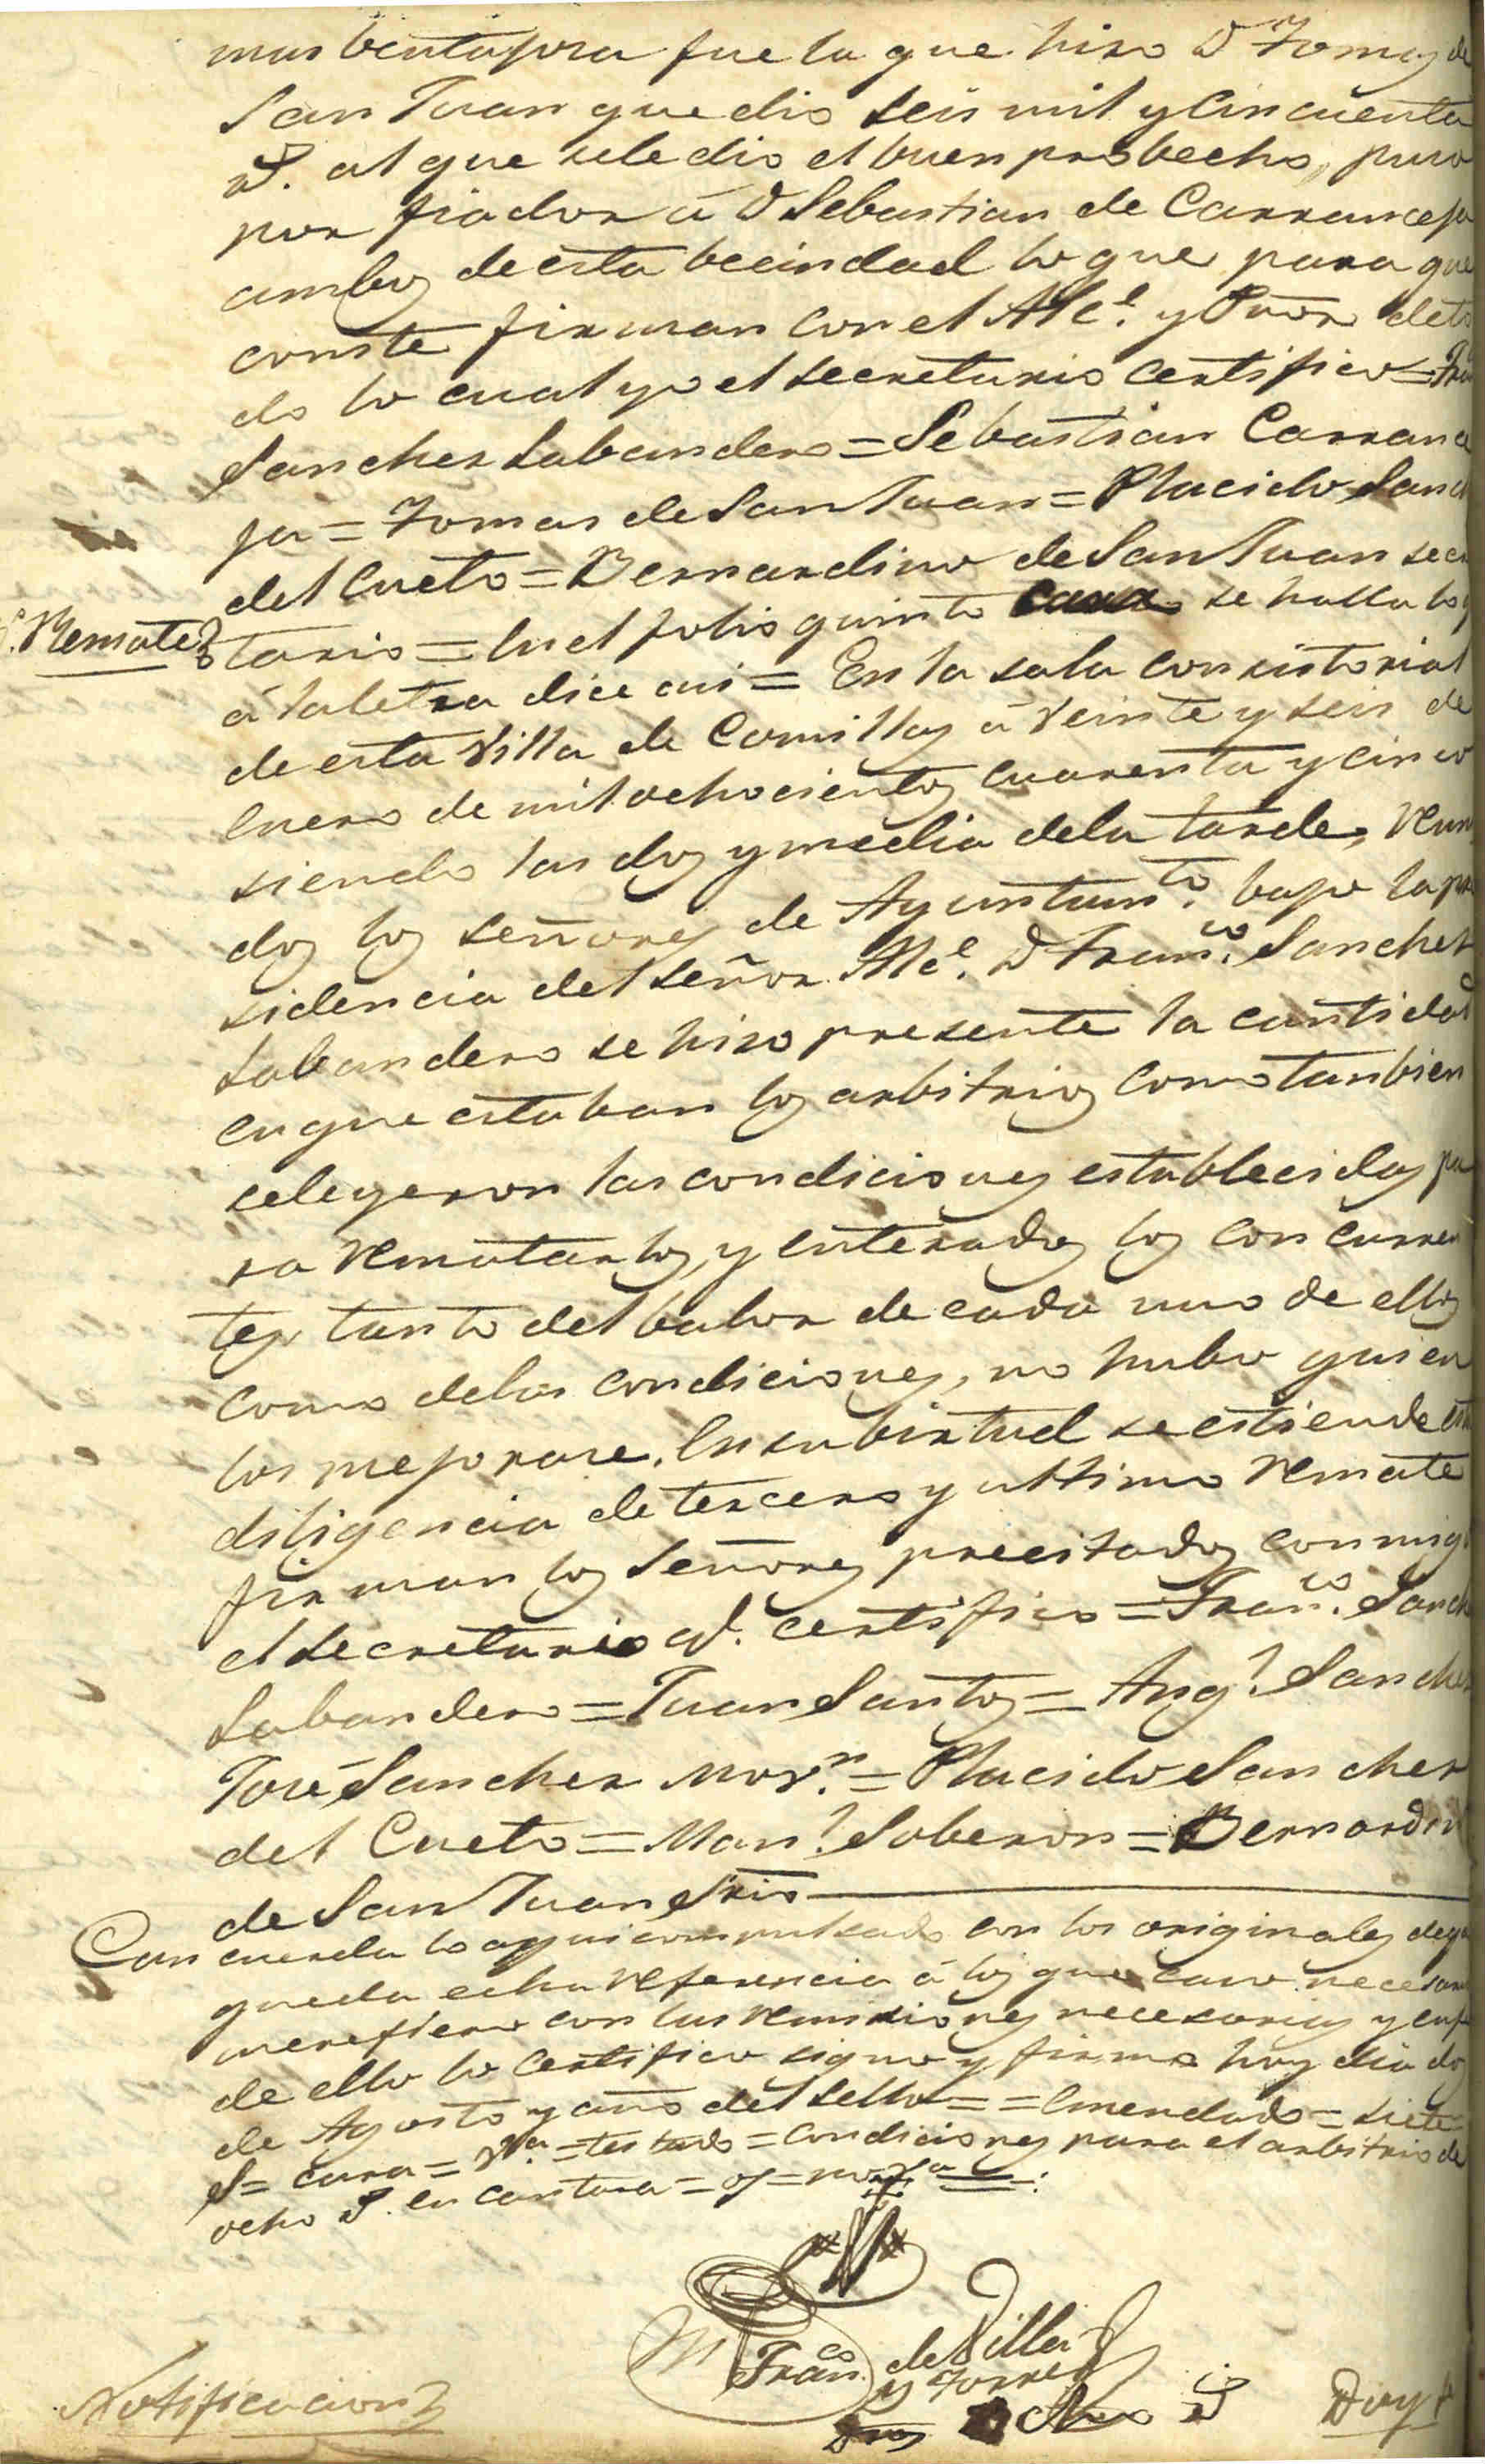 mas bentajosa fue la que hiso D. Tomas de
San Juan que dio seis mil y cincuenta
rs. al que sele dio el buen probecho, puso
por fiador á D Sebastian de Carranceja
ambos de esta becindad lo que para que
conste firman con el Alc.e y Pror deto
do lo cual yo el secretario certifico = Fran
Sanches Labandero = Sebastian Carrance
ja = Tomas de San Juan = Placido Sanch
del Cueto = Bernardino de San Juan secre
Remate
tario = En el folio quinto cara se halla lo q
á la letra dice asi = En la sala consistorial
de esta Villa de Comillas á veinte y seis de
Enero de mil ochocientos cuarenta y cinco
siendo las dos y media dela tarde, reuni
dos los señores de Ayuntam.to bajo la pre
sidencia del señor Alc.e D Fran.co Sanches
Labandero se hiso presente la cantidad
en que estaban los arbitrios como tanbien
seleyeron las condiciones establecidas pa
ra rematarlos, y enterados los concurren
tes tanto del balor de cada uno de ellos
como delas condiciones, no hubo quien
los mejorare. En su birtud se estiende esta
diligencia de tercero y ultimo remate
firman los Señores precitados conmigo
el secretario q.e certifico = Fran.co Sanche
Labandero = Juan Santos = Ang.l Sanches
José Sanches Mov.n = Placido Sanches
del Cueto = Man.l Soberon = Bernardin
de San Juan Srio
Concuerda lo aqui compulsado con los originales deque
queda echa referencia á los que caso necesario
merefiero con las remisiones necesarias y enfe
de ello lo certifico signo y firmo hoy dia dos
de Agosto y año del sello = = Emendado = siete
S = cara = = testado = condiciones para el arbitrio de
ocho rs. en cantara = =
Fran.co de Villa
y Torre
Notificacion
Doy f